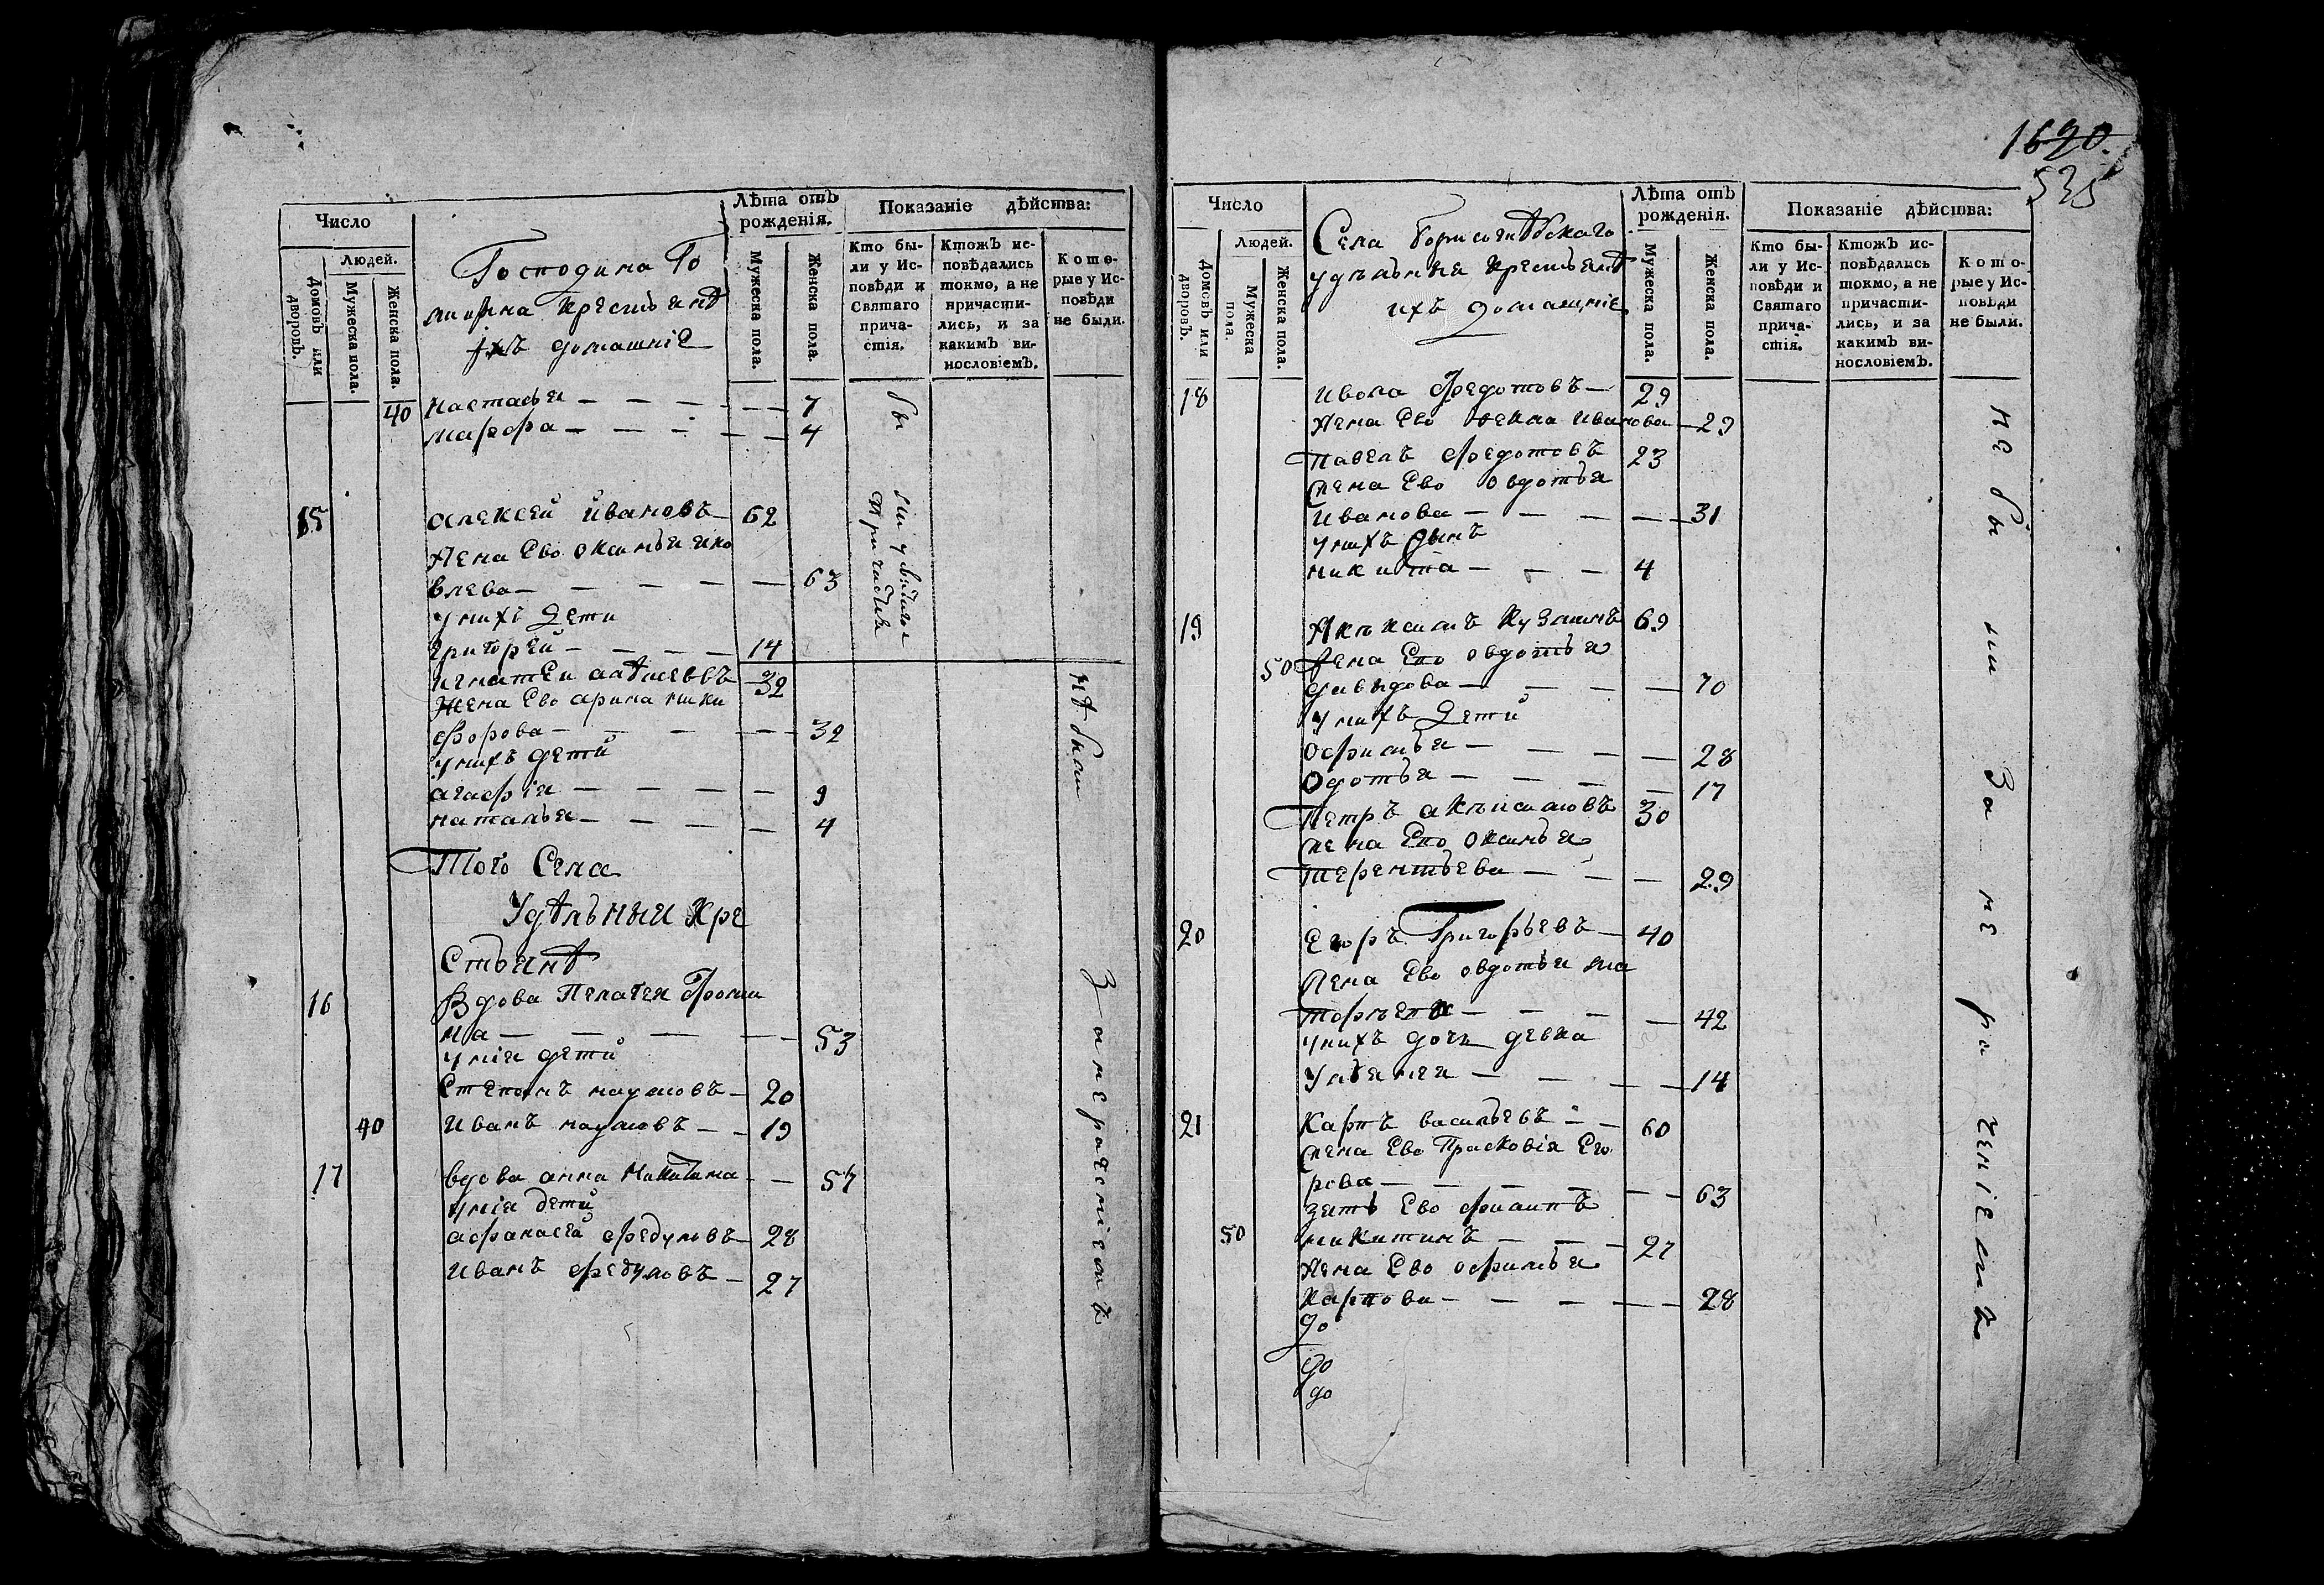 Число
Людей.
Домовъ или дворовъ.
Мужеска пола.
Женска пола.
Господина Го
крестьянѣ
ихъ домашніе
Лѣта отъ рожденія.
Мужеска пола.
Женска пола.
Показаніе дѣйства:
Кто были у Исповѣди и Святаго причастія.
Ктожъ исповѣдались токмо, а не причастились, и за какимъ винословіемъ.
Которые у Исповѣди не были.
40 настасья — — — — — 7
марфа — — — — — 4
15 алексей ивановъ — 62
жена Ево оксинья яко
влева — — — — — 63
унихъ дети
григорей — — — — 14
32
жена Ево арина ники
форова — — — — — 32
унихъ дети
агафія — — — — — 9
наталья — — — — — 4
Того Села
Удѣльныи Кре
стьянѣ
16 Вдова Пелагея Фроми
на — — — — 53
унія дети
Степанъ наумовъ — 20
40 Иванъ наумовъ — — 19
17 вдова анна Никитина — — 57
унія дети
афанасей федуловъ — 28
Иванъ федуловъ — 27
бы
ли у
причастия
не были
За нерачениемъ
1690.
535
Число
Людей.
Домовъ или дворовъ.
Мужеска пола.
Женска пола.
Села
удѣльныя крестьянѣ
ихъ домашніе
Лѣта отъ рожденія.
Мужеска пола.
Женска пола.
Показаніе дѣйства:
Кто были у Исповѣди и Святаго причастія.
Ктожъ исповѣдались токмо, а не причастились, и за какимъ винословіемъ.
Которые у Исповѣди не были.
18 Федотовъ — 29
жена Ево Иванова — 29
павелъ федотовъ 23
жена Ево овдотья
Иванова — — — — — 31
унихъ сынъ
никита — — — 4
19 Кузминъ 69
50 жена Ево овдотья
давыдова — — — — 70
унихъ дети
офимья — — — — 28
Одотья — — — — 17
Петръ 30
жена Ево оксинья
терентьева — — — 29
20 Егоръ Григорьевъ — 40
жена Ево овдотья ма
— — — — 42
унихъ дочь девка
Ульянея — — — — 14
21 Карпъ васильевъ — — 60
жена Ево Прасковія Его
рова — — — — — 63
зять Ево филипъ
50 никитинъ — — — 27
жена Ево офимья
карпова — — — — — 28
до
до
до
не были За не рачениемъ